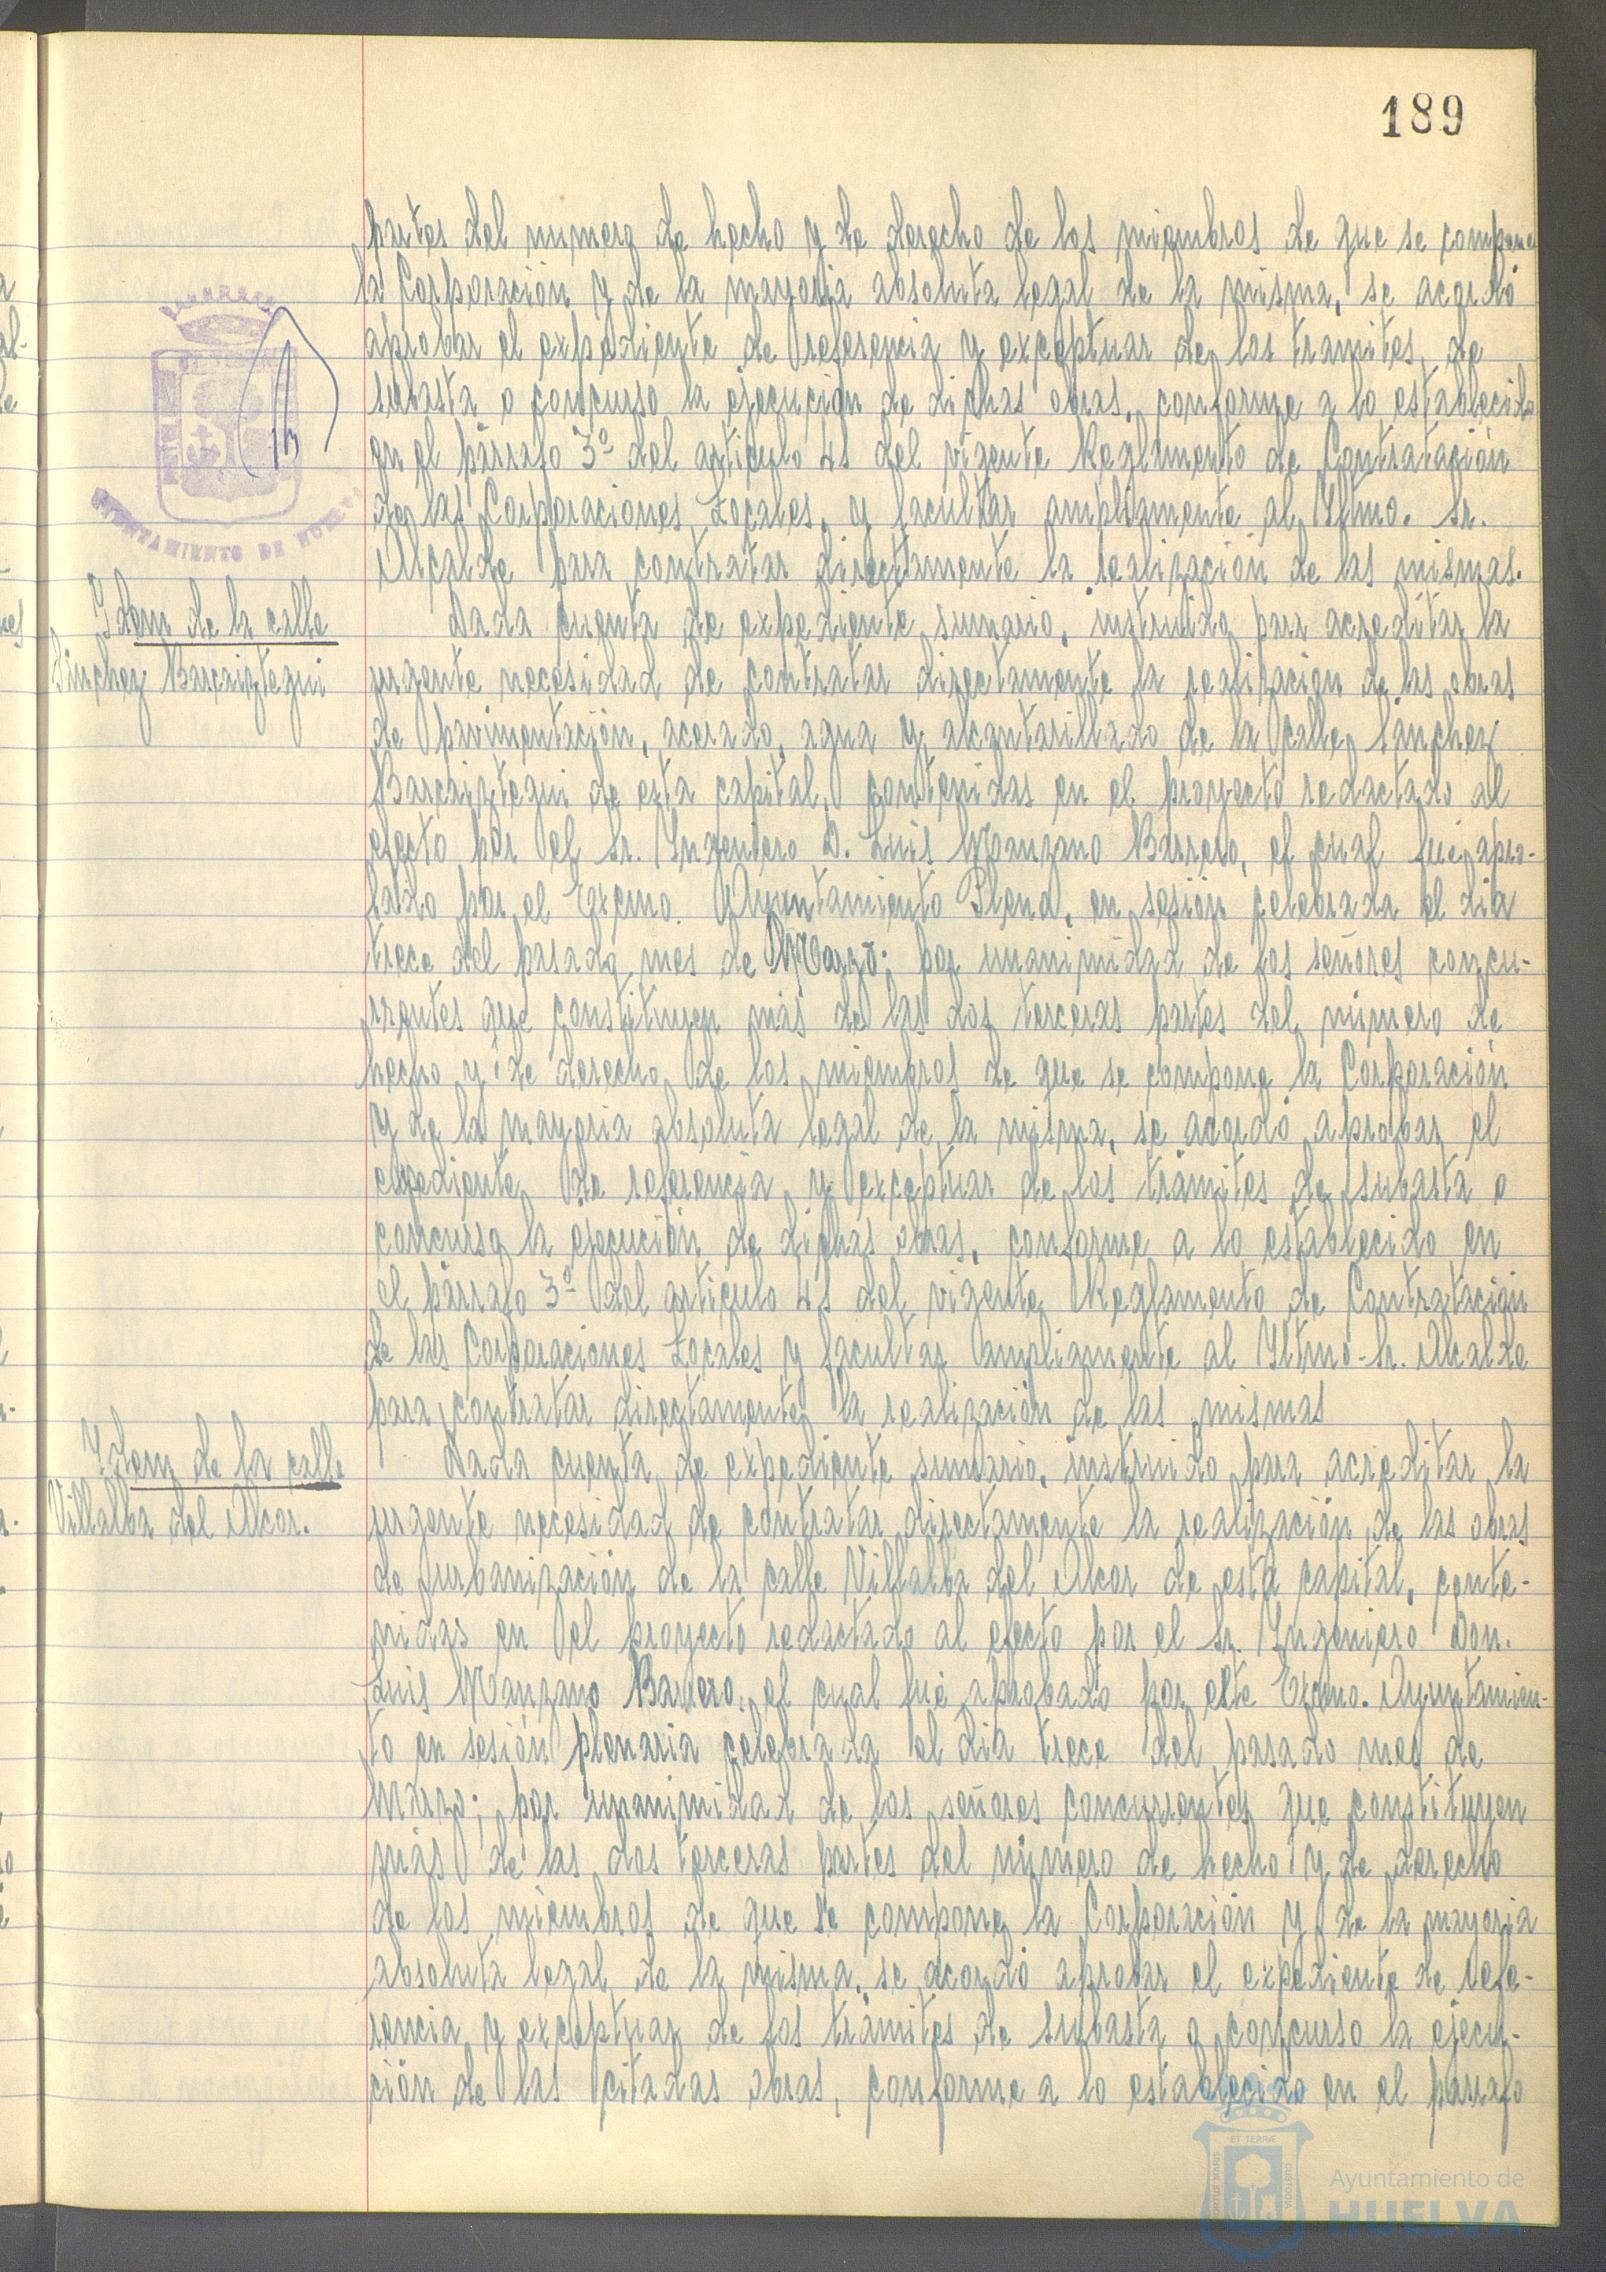 189
partes del numero de hecho y de derecho de los miembros de que se compone
la Corporación y de la mayoria absoluta legal de la misma, se acordó
aprobar el expediente de referencia y exceptuar de los tramites de
subasta o concurso la ejecución de dichas obras, conforme a lo establecido
en el párrafo 3º del articulo 41 del vigente Reglamento de Contratación
de las Corporaciones Locales, y facultar ampliamente al Yltmo. Sr.
Alcalde para contratar directamente la realización de las mismas.
AYUNTAMIENTO DE HUELVA
Idem de la calle
Sánchez Barcaiztegui
Dada cuenta de expediente sumario, instruido para acreditar la
urgente necesidad de contratar directamente la realización de las obras
de pavimentación, acerado, agua y alcantarillado de la calle Sánchez
Barcaiztegui de esta capital, contenidas en el proyecto redactado al
efecto por el Sr. Yngeniero D. Luis Manzano Barrero, el cual fué apro-
bado por el Excmo. Ayuntamiento Pleno, en sesión celebrada el dia
trece del pasado mes de Marzo; por unanimidad de los señores concu-
rrentes que constituyen más de las dos terceras partes del número de
hecho y de derecho de los miembros de que se compone la Corporación
y de la mayoria absoluta legal de la misma, se acordó aprobar el
expediente de referencia y exceptuar de los trámites de subasta o
concurso la ejecución de dichas obras, conforme a lo establecido en
el párrafo 3º del articulo 41 del vigente Reglamento de Contratación
de las Corporaciones Locales y facultar ampliamente al Yltmo. Sr. Alcalde
para contratar directamente la realización de las mismas
Idem de la calle
Villalba del Alcor.
Dada cuenta de expediente sumario, instruido para acreditar la
urgente necesidad de contratar directamente la realización de las obras
de urbanización de la calle Villalba del Alcor de esta capital, conte-
nidas en el proyecto redactado al efecto por el Sr. Yngeniero Don.
Luis Manzano Barrero, el cual fué aprobado por este Excmo. Ayuntamien-
to en sesión plenaria celebrada el dia trece del pasado mes de
Marzo; por unanimidad de los señores concurrentes que constituyen
más de las dos terceras partes del número de hecho y de derecho
de los miembros de que se compone la Corporación y de la mayoria
absoluta legal de la misma, se acordó aprobar el expediente de refe-
rencia y exceptuar de los trámites de subasta o concurso la ejecu-
ción de las citadas obras, conforme a lo establecido en el párrafo
Ayuntamiento de
HUELVA